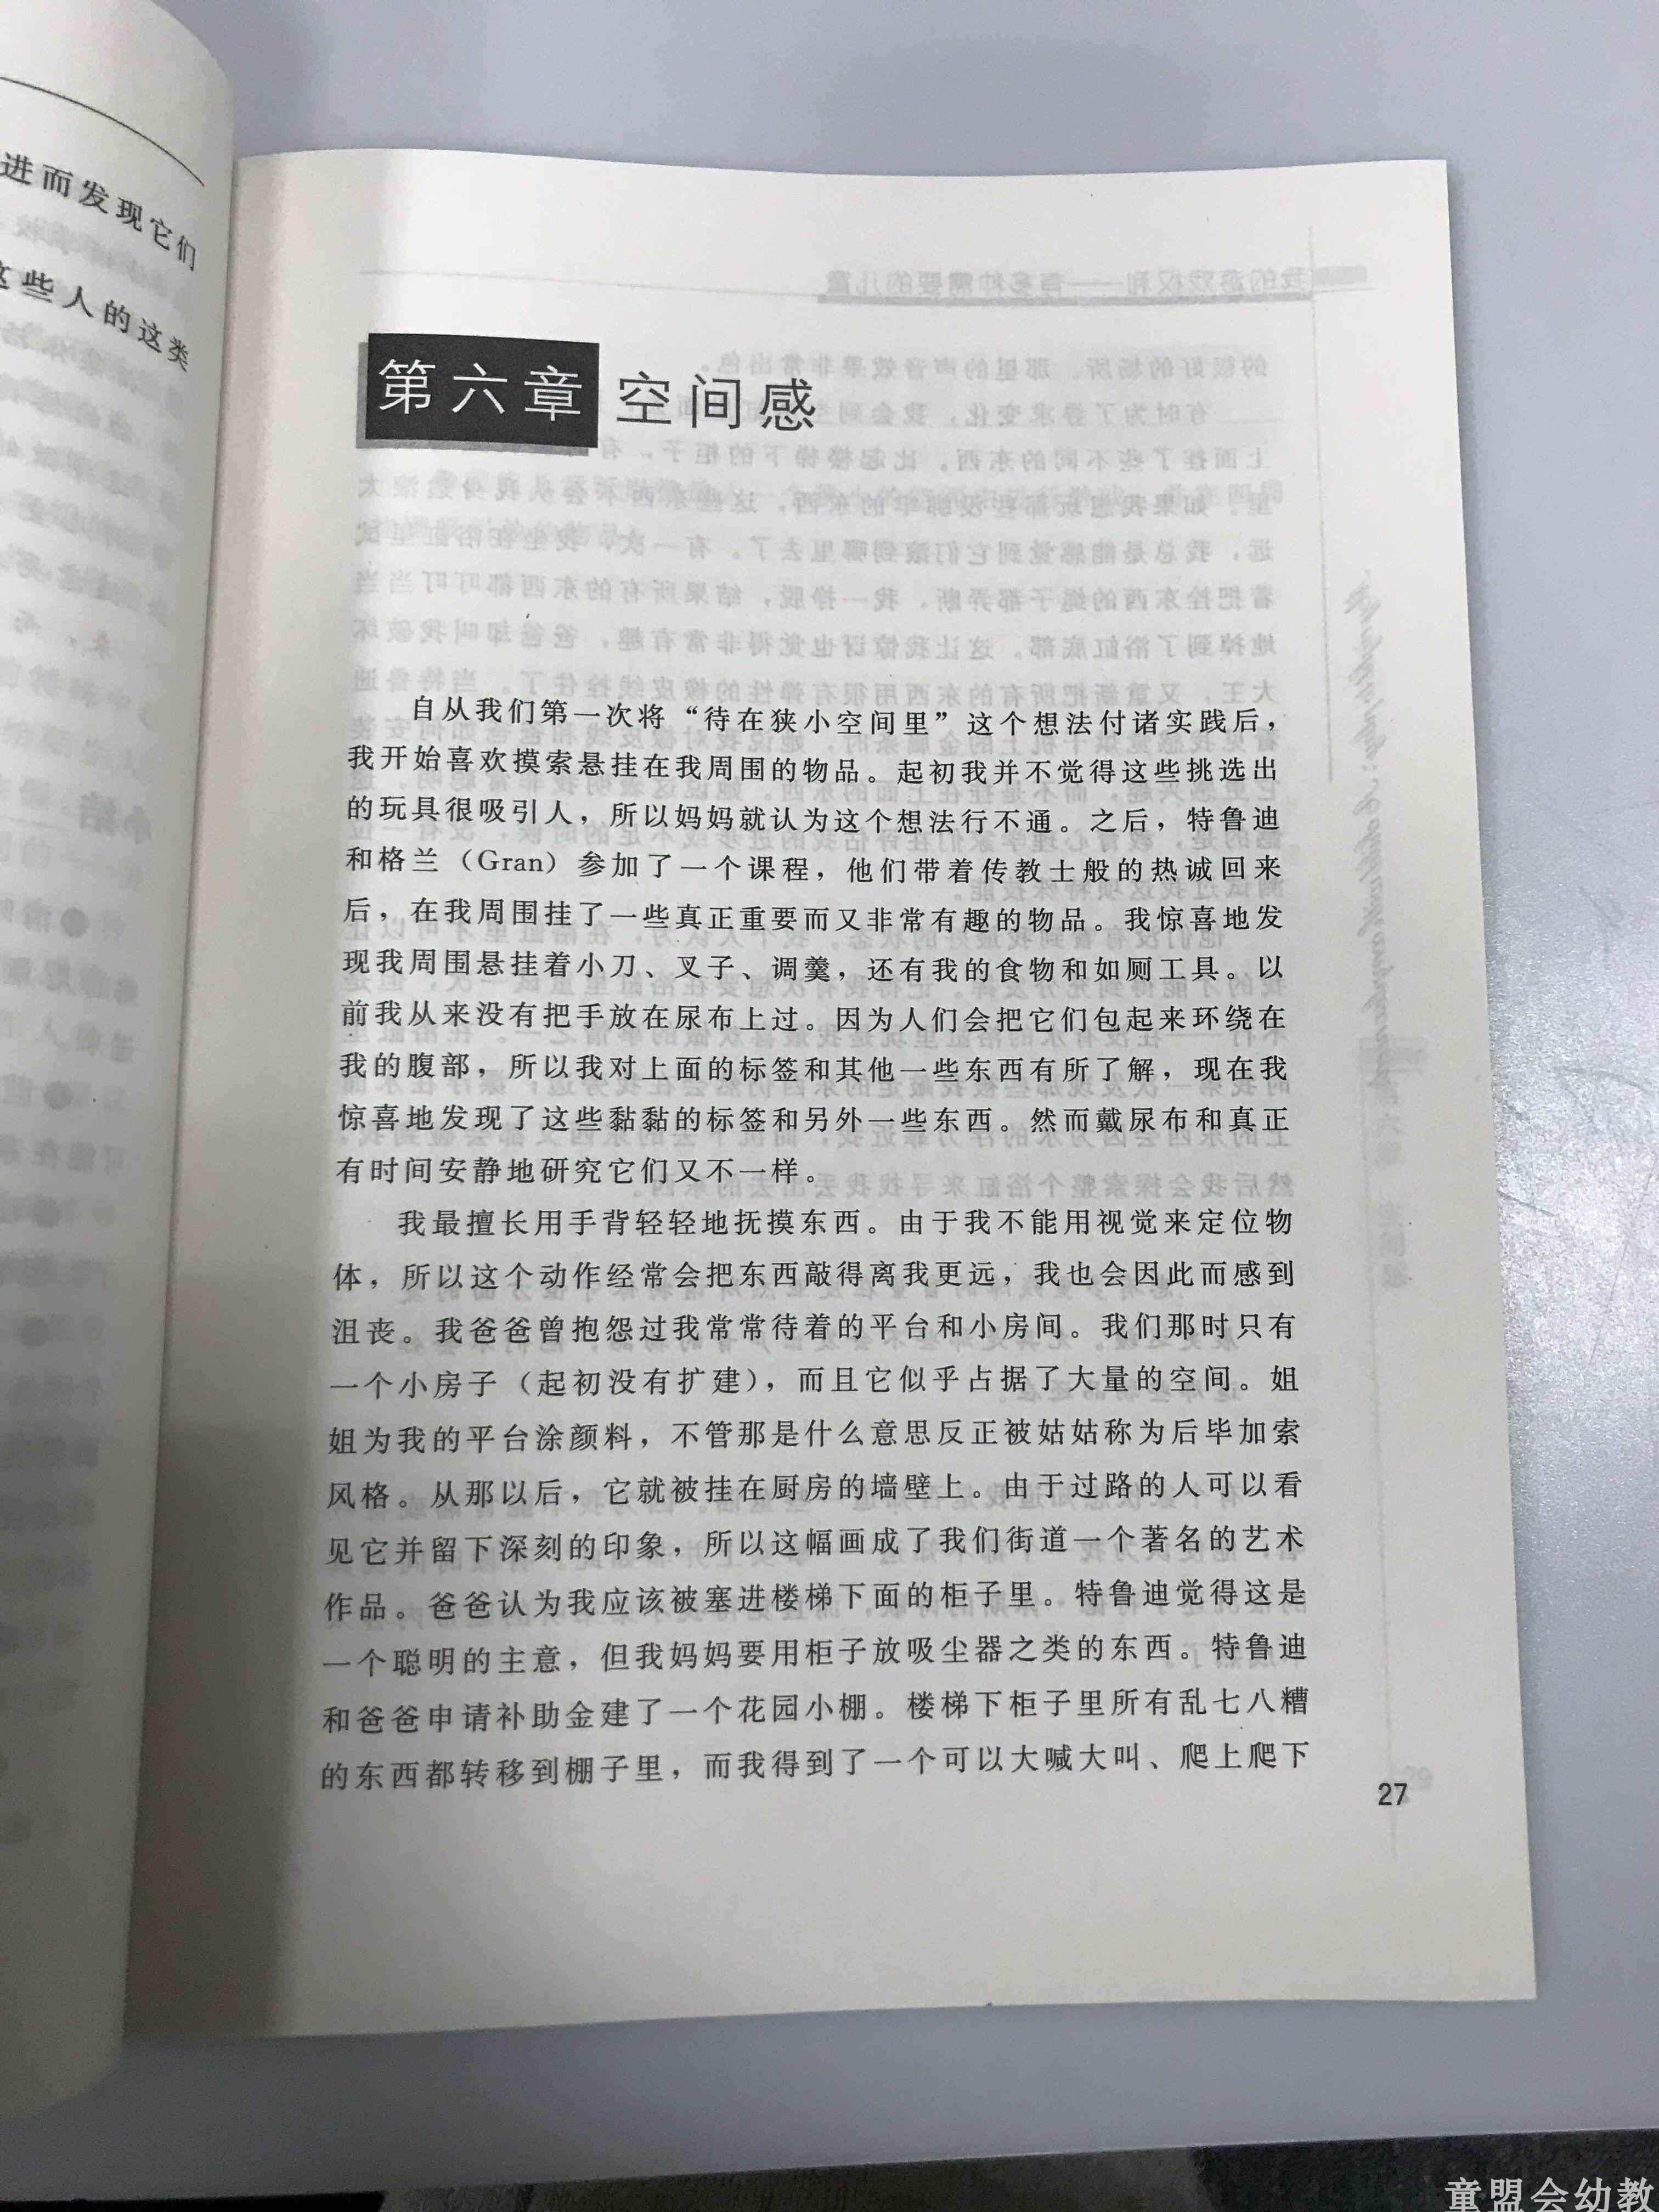 进而发现它们
这些人的这类
第六章 空间感
自从我们第一次将“待在狭小空间里”这个想法付诸实践后，
我开始喜欢摸索悬挂在我周围的物品。起初我并不觉得这些挑选出
的玩具很吸引人，所以妈妈就认为这个想法行不通。之后，特鲁迪
和格兰（Gran）参加了一个课程，他们带着传教士般的热诚回来
后，在我周围挂了一些真正重要而又非常有趣的物品。我惊喜地发
现我周围悬挂着小刀、叉子、调羹，还有我的食物和如厕工具。以
前我从来没有把手放在尿布上过。因为人们会把它们包起来环绕在
我的腹部，所以我对上面的标签和其他一些东西有所了解，现在我
惊喜地发现了这些黏黏的标签和另外一些东西。然而戴尿布和真正
有时间安静地研究它们又不一样。
我最擅长用手背轻轻地抚摸东西。由于我不能用视觉来定位物
体，所以这个动作经常会把东西敲得离我更远，我也会因此而感到
沮丧。我爸爸曾抱怨过我常常待着的平台和小房间。我们那时只有
一个小房子（起初没有扩建），而且它似乎占据了大量的空间。姐
姐为我的平台涂颜料，不管那是什么意思反正被姑姑称为后毕加索
风格。从那以后，它就被挂在厨房的墙壁上。由于过路的人可以看
见它并留下深刻的印象，所以这幅画成了我们街道一个著名的艺术
作品。爸爸认为我应该被塞进楼梯下面的柜子里。特鲁迪觉得这是
一个聪明的主意，但我妈妈要用柜子放吸尘器之类的东西。特鲁迪
和爸爸申请补助金建了一个花园小棚。楼梯下柜子里所有乱七八糟
的东西都转移到棚子里，而我得到了一个可以大喊大叫、爬上爬下
27
童盟会幼教